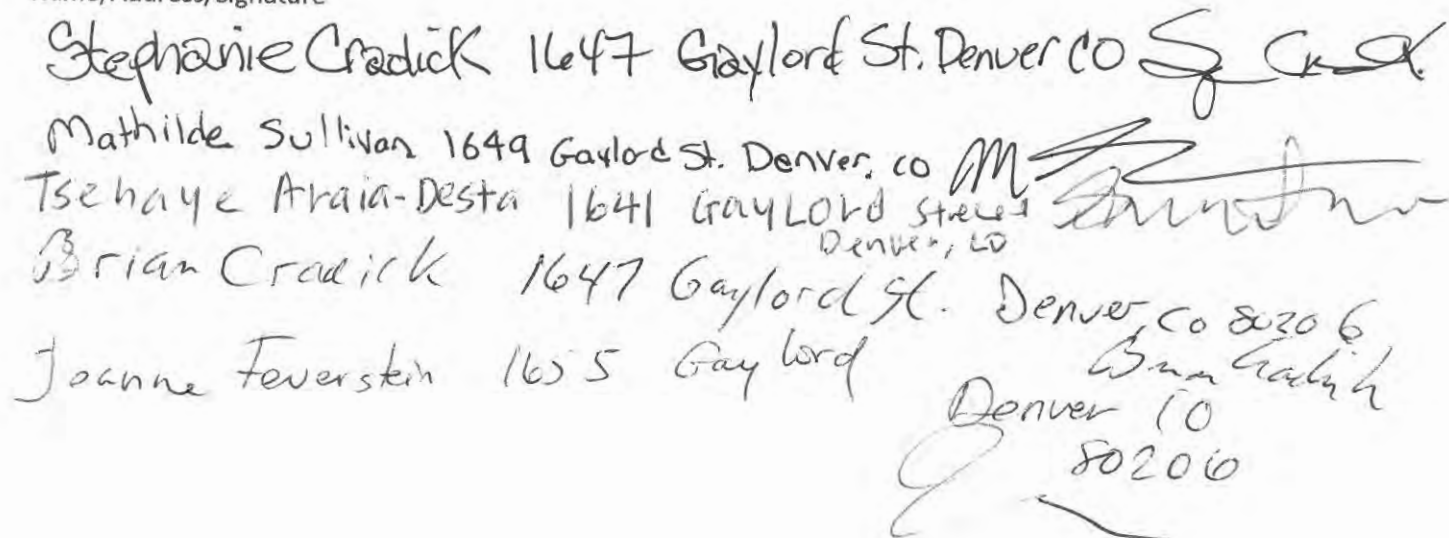 Name/Address/Signature
Stephanie Cradick 1647 Gaylord St. Denver CO
Mathilde Sullivan 1649 Gaylord St. Denver, CO
Tsehaye Araia-Desta 1641 GayLord Street
Denver, CO
Brian Cradick 1647 Gaylord St. Denver, Co 80206
Brian Cradick
Joanne Feuerstein 1655 Gaylord
Denver CO
80206